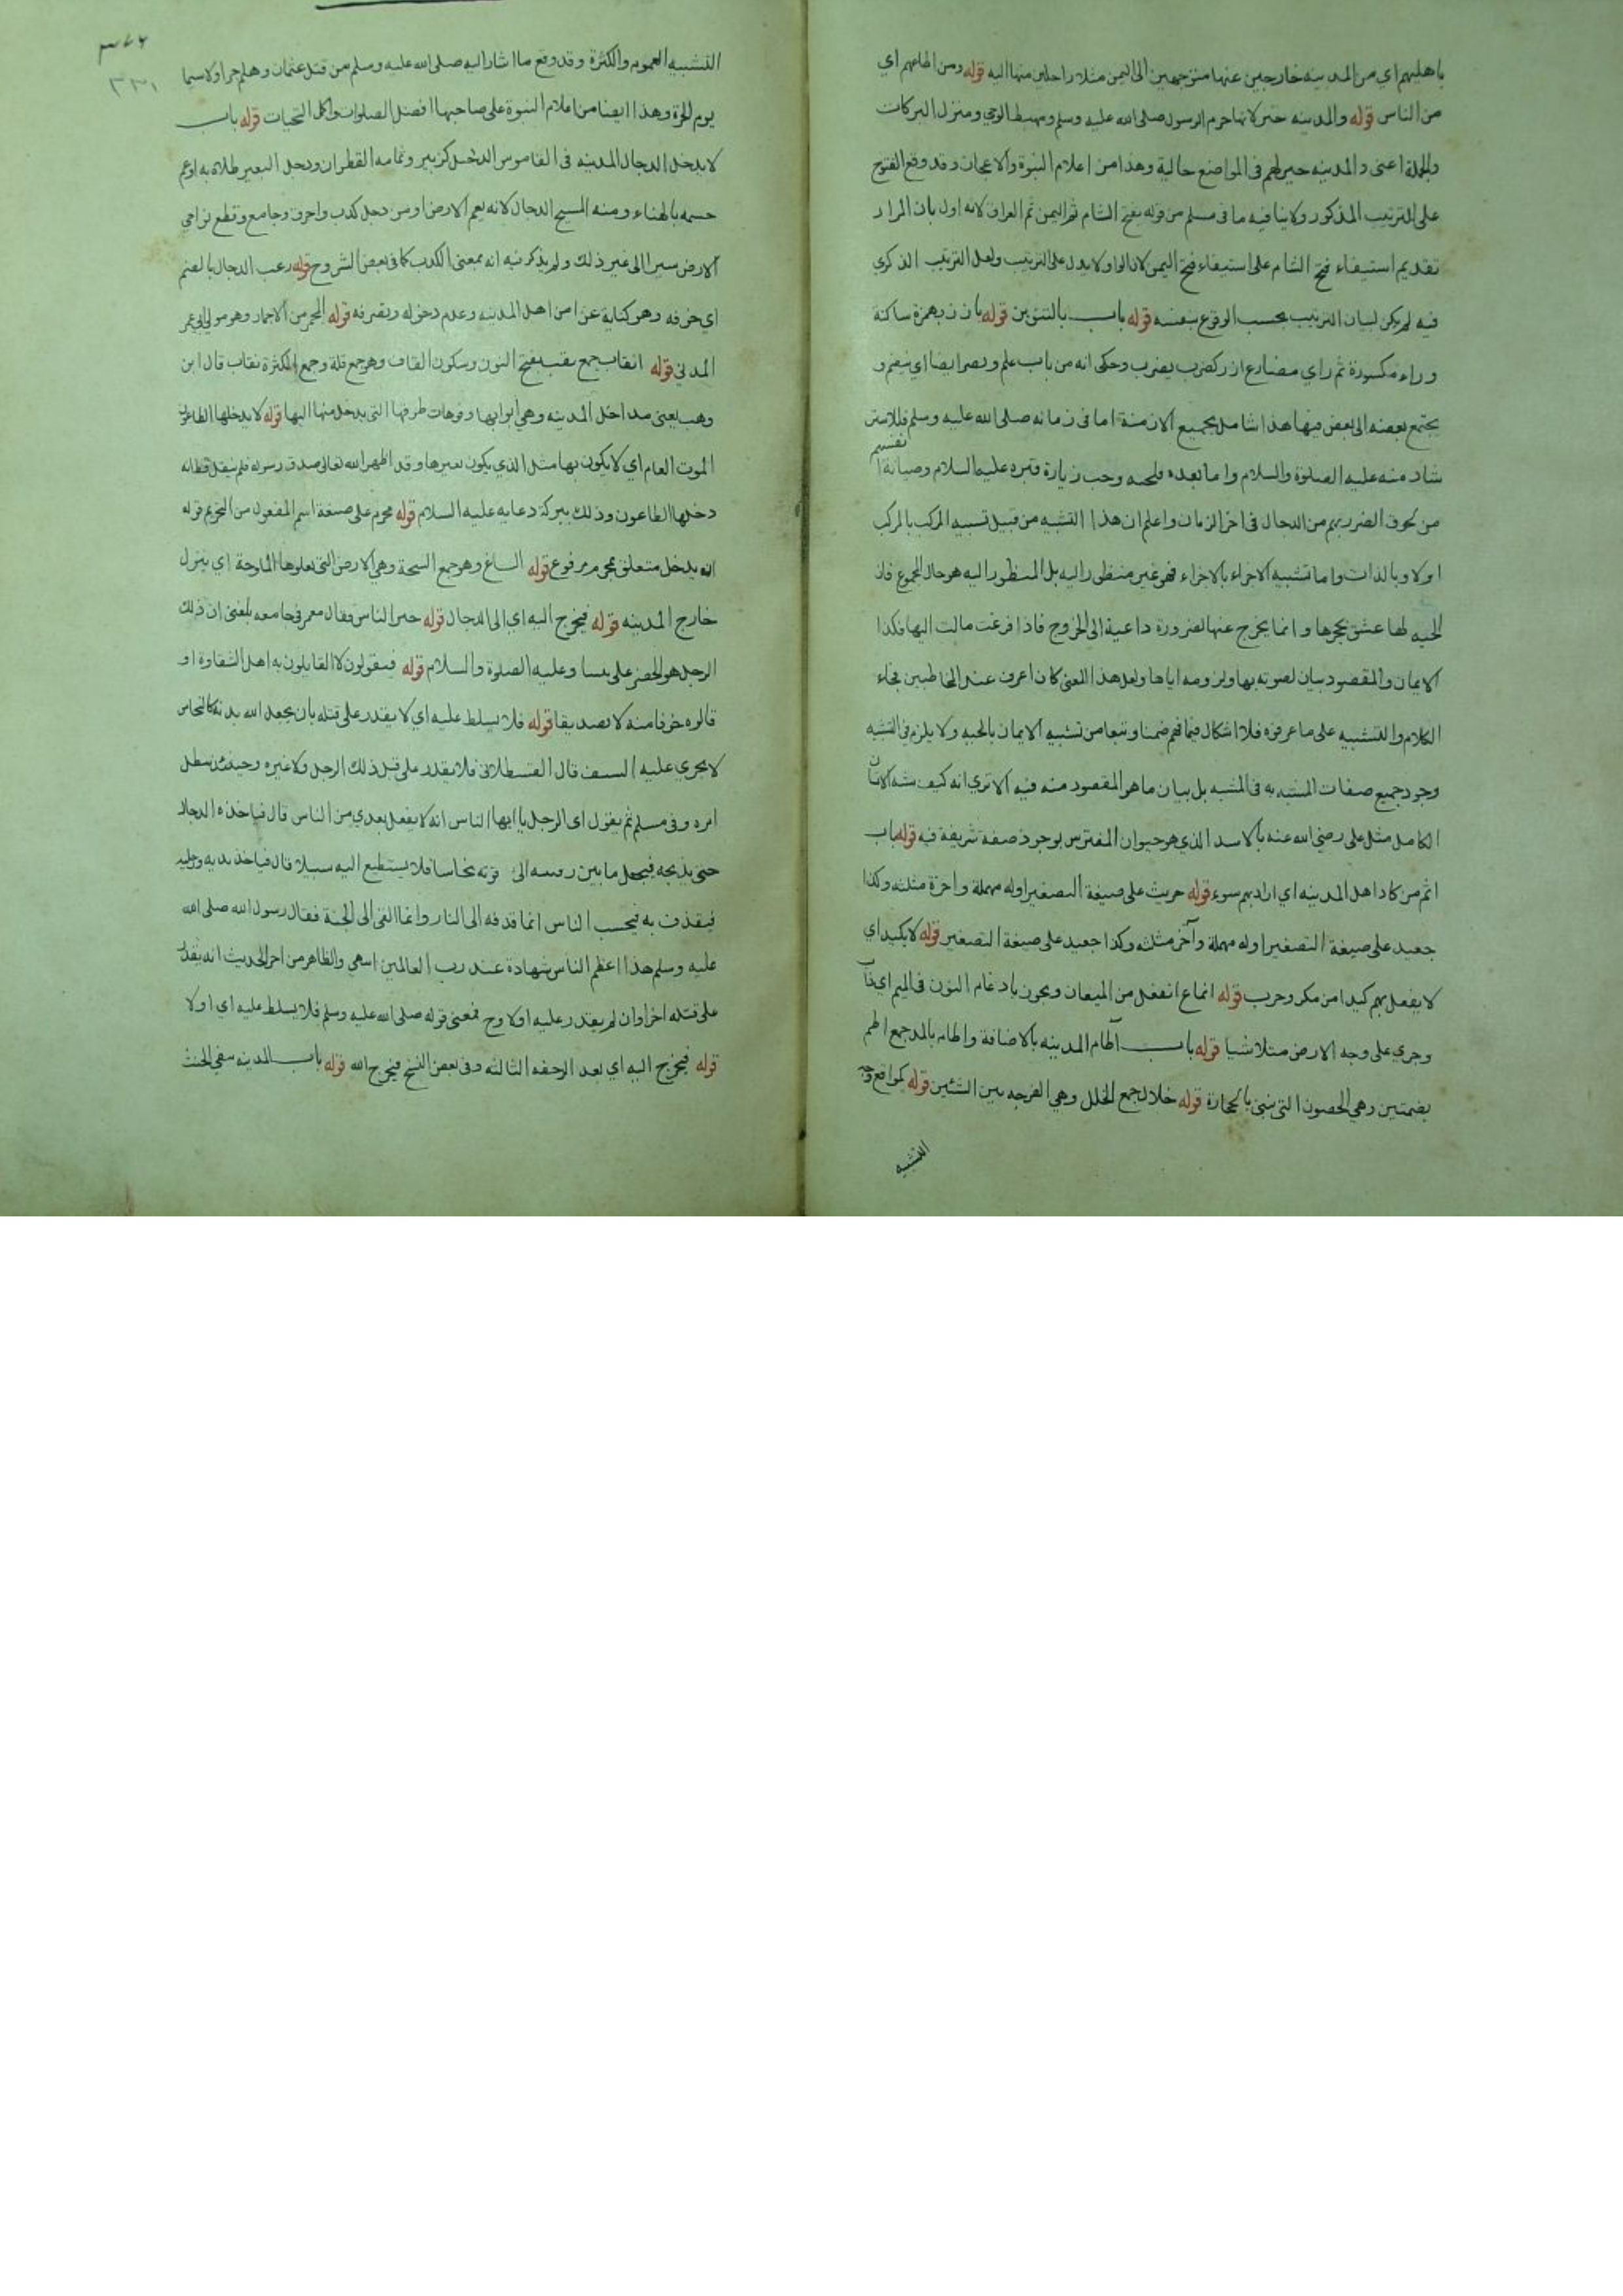 باهليهم اي من المدينه خارجين عنها متوجهين الى اليمن مثلا راحلين منها اليه قوله ومن اطاعهم اي
من الناس قوله والمدينه خير لانها حرم الرسول صلى الله عليه وسلم ومهبط الوحي ومنزل البركات
والجملة اعنى والمدينه خير لهم في المواضع حالية وهذا من اعلام النبوة والاعجاز وقد وقع الفتوح
على الترتيب المذكور ولا ينافيه ما في مسلم من قوله يفتح الشام ثم اليمن ثم العراق لانه اول بان المراد
تقديم استيفاء فتح الشام على استيفاء فتح اليمن لان الواو لا يدل على الترتيب ولعل الترتيب الذكري
فيه لم يكن لبيان الترتيب بحسب الوقوع بنفسه قوله باب بالتنوين قوله يأرز بهمزة ساكنة
وراء مكسورة ثم زاي مضارع ارز كضرب يضرب وحكى انه من باب علم ونصر ايضا اي ينضم و
يجتمع بعضه الى بعض فيها هذا شامل لجميع الازمنة اما في زمانه صلى الله عليه وسلم
شاد منه عليه الصلوة والسلام واما بعده وحب زيارة قبره عليه السلام وصيانة
من لحوق الضرر بهم من الدجال في اخر الزمان واعلم ان هذا التشبيه من قبيل تشبيه المركب بالمركب
اولا وبالذات واما تشبيه الاجزاء بالاجزاء فهو غير منظور اليه بل المنظور اليه هو حال المجموع فان
الحيه لها عشق بجحرها وانما يخرج عنها لضرورة داعية الى الخروج فاذا فرغت مالت اليها فكذا
الايمان والمقصود بيان لصوقه بها ولزومه اياها ولعل هذا المعنى كان اعرف عند المخاطبين فجاء
الكلام والتشبيه على ما عرفوه فلا اشكال فيما فهم ضمنا وتبعا من تشبيه الايمان بالحيه ولا يلزم في التشبيه
وجود جميع صفات المشبه به في المشبه بل بيان ما هو المقصود منه فيه الا ترى انه كيف شبه الانسان
الكامل مثل على رضي الله عنه بالاسد الذي هو حيوان المفترس بوجود صفة شريفة فيه قوله باب
اثم من كاد اهل المدينه اي اراد بهم سوء قوله حريث على صيغة التصغير اوله مهملة واخره مثلثه وكذا
جعيد على صيغة التصغير اوله مهملة وآخره مثلثه وكذا جعيد على صيغة التصغير قوله لا يكيد اي
لا يفعل بهم كيدا من مكر وحرب قوله انماع انفعل من الميعان ويجوز بادغام النون في الميم اي ذاب
وجرى على وجه الارض متلاشيا قوله باب آطام المدينه بالاضافة واطام بالمد جمع اطم
بضمتين وهي الحصون التي تبنى بالحجارة قوله خلال جمع الخلل وهي الفرجه بين الشئين قوله كمواقع
التشبيه
٣٣١
التشبيه العموم والكثرة وقد وقع ما اشار اليه صلى الله عليه وسلم من قتل عثمان وهلم جرا ولا سيما
يوم الحرة وهذا ايضا من اعلام النبوة على صاحبها افضل الصلوات واكمل التحيات قوله باب
لا يدخل الدجال المدينه في القاموس الدجل كزبير وثمامه القطران ودجل البعير طلاه به او عم
جسمه بالهناء ومنه المسيح الدجال لانه يعم الارض او من دجل كذب واحرق وجامع وقطع نواحي
الارض سيرا الى غير ذلك ولم يذكر فيه انه بمعنى الكذب كما في بعض الشروح قوله رعب الدجال بالضم
اي خوفه وهو كناية عن امن اهل المدينه وعدم دخوله وتصرفه قوله المجمر من الاجمار وهو مولى ابي عمر
المدني قوله انقاب جمع نقب بفتح النون وسكون القاف وهو جمع قلة وجمع الكثرة نقاب قال ابن
وهب يعنى مداخل المدينه وهي ابوابها وفوهات طرقها التى يدخل منها اليها قوله لا يدخلها الطاعون
الموت العام اي لا يكون بها مثل الذي يكون بغيرها وقد اظهر الله تعالى صدق رسوله فلم ينقل قط انه
دخلها الطاعون وذلك ببركة دعايه عليه السلام قوله محرم على صيغة اسم المفعول من التحريم قوله
ان يدخل متعلق بمحرم مرفوع قوله السباخ وهو جمع السبخة وهي الارض التى تعلوها الملوحة اي ينزل
خارج المدينه قوله فيخرج اليه اي الى الدجال قوله خير الناس وقال معمر في جامعه بلغنى ان ذلك
الرجل هو الخضر على نبينا وعليه الصلوة والسلام قوله فيقولون لا القايلون به اهل الشقاوة او
قالوه خوفا منه لا تصديقا قوله فلا يسلط عليه اي لا يقدر على قتله بان يجعل الله بدنه كالنحاس
لا يجري عليه السيف قال القسطلانى فلا يقدر على قتل ذلك الرجل ولا غيره وحينئذ يبطل
امره وفي مسلم ثم يقول اى الرجل يا ايها الناس انه لا يفعل بعدي من الناس قال فياخذه الدجال
حتى يذبحه فيجعل ما بين رقبته الى ترقوته نحاسا فلا يستطيع اليه سبيلا قال فياخذ بيديه ورجليه
فيقذف به فيحسب الناس انما قذفه الى النار وانما القى الى الجنة فقال رسول الله صلى الله
عليه وسلم هذا اعظم الناس شهادة عند رب العالمين انتهى والظاهر من اخر الحديث انه يقدر
على قتله اخرا وان لم يقدر عليه اولا وح فمعنى قوله صلى الله عليه وسلم فلا يسلط عليه اي اولا
قوله فيخرج اليه اي بعد الرجفه الثالثه وفي بعض النسخ فيخرج الله قوله باب المدينه تنفي الخبث